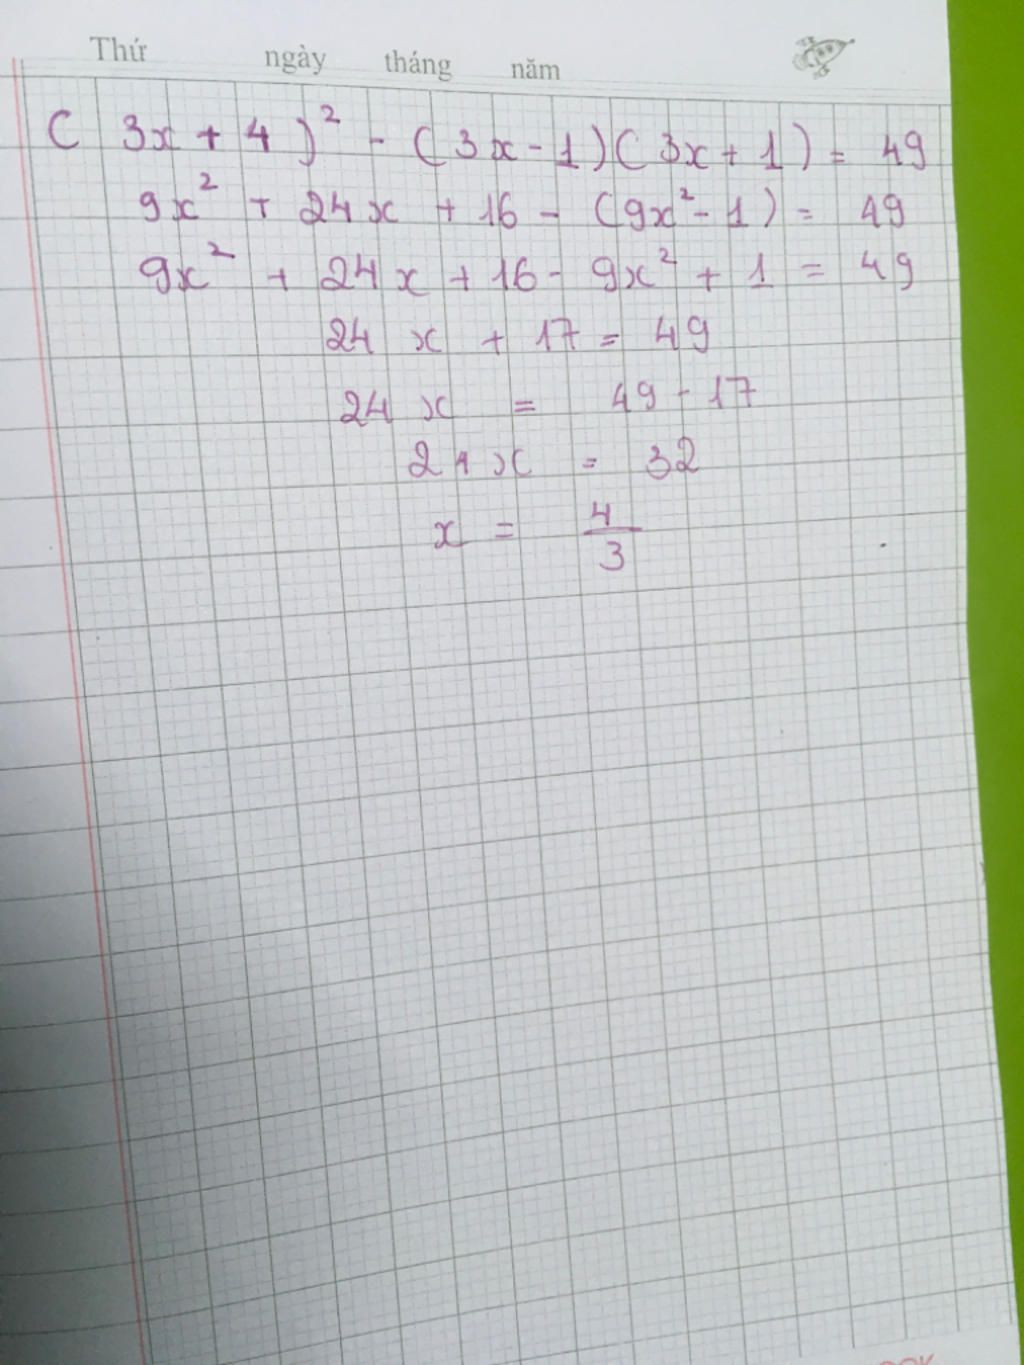 Thứ ngày tháng năm
( 3x + 4 )² - ( 3x - 1 ) ( 3x + 1 ) = 49
9x² + 24x + 16 - (9x² - 1) = 49
9x² + 24x + 16 - 9x² + 1 = 49
24x + 17 = 49
24x = 49 - 17
24x = 32
x = 4/3